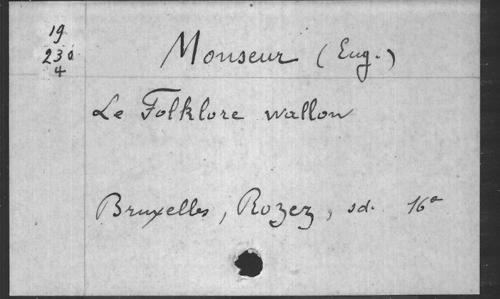 19
230
4
Monseur (Eug.)
Le Folklore wallon
Bruxelles, Rozez, sd. 16°